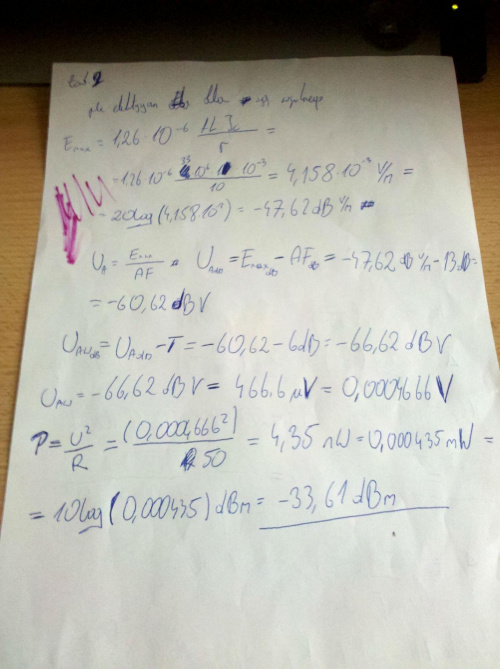 Zad 2
dla
E max = 1,26 · 10^-6 =
= 1,26 · 10^-6 33 · 10^-3 / 10 = 4,158 · 10^-3 V/m =
= 20 log (4,158 10^-3) = -47,62 dB V/m
U_A = E max / AF U_A dB = E max dB - AF dB = -47,62 dB V/m - 13 dB =
= -60,62 dBV
U_AW dB = U_A dB - T = -60,62 - 6dB = -66,62 dBV
U_AW = -66,62 dBV = 466.6 μV = 0,0004666 V
P = U^2 / R = (0,000,666^2) / 50 = 4,35 nW = 0,000435 mW =
= 10 log (0,000435) dBm = -33,61 dBm